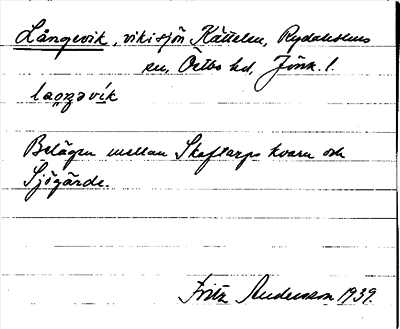 Långevik, vik i sjön Kättelen, Rydaholms
sn, Östbo hd, Jönk. l.
laŋgəvík
Belägen mellan Skaftarps kvarn och
Sjögärde.
Fritz Andersson 1939.